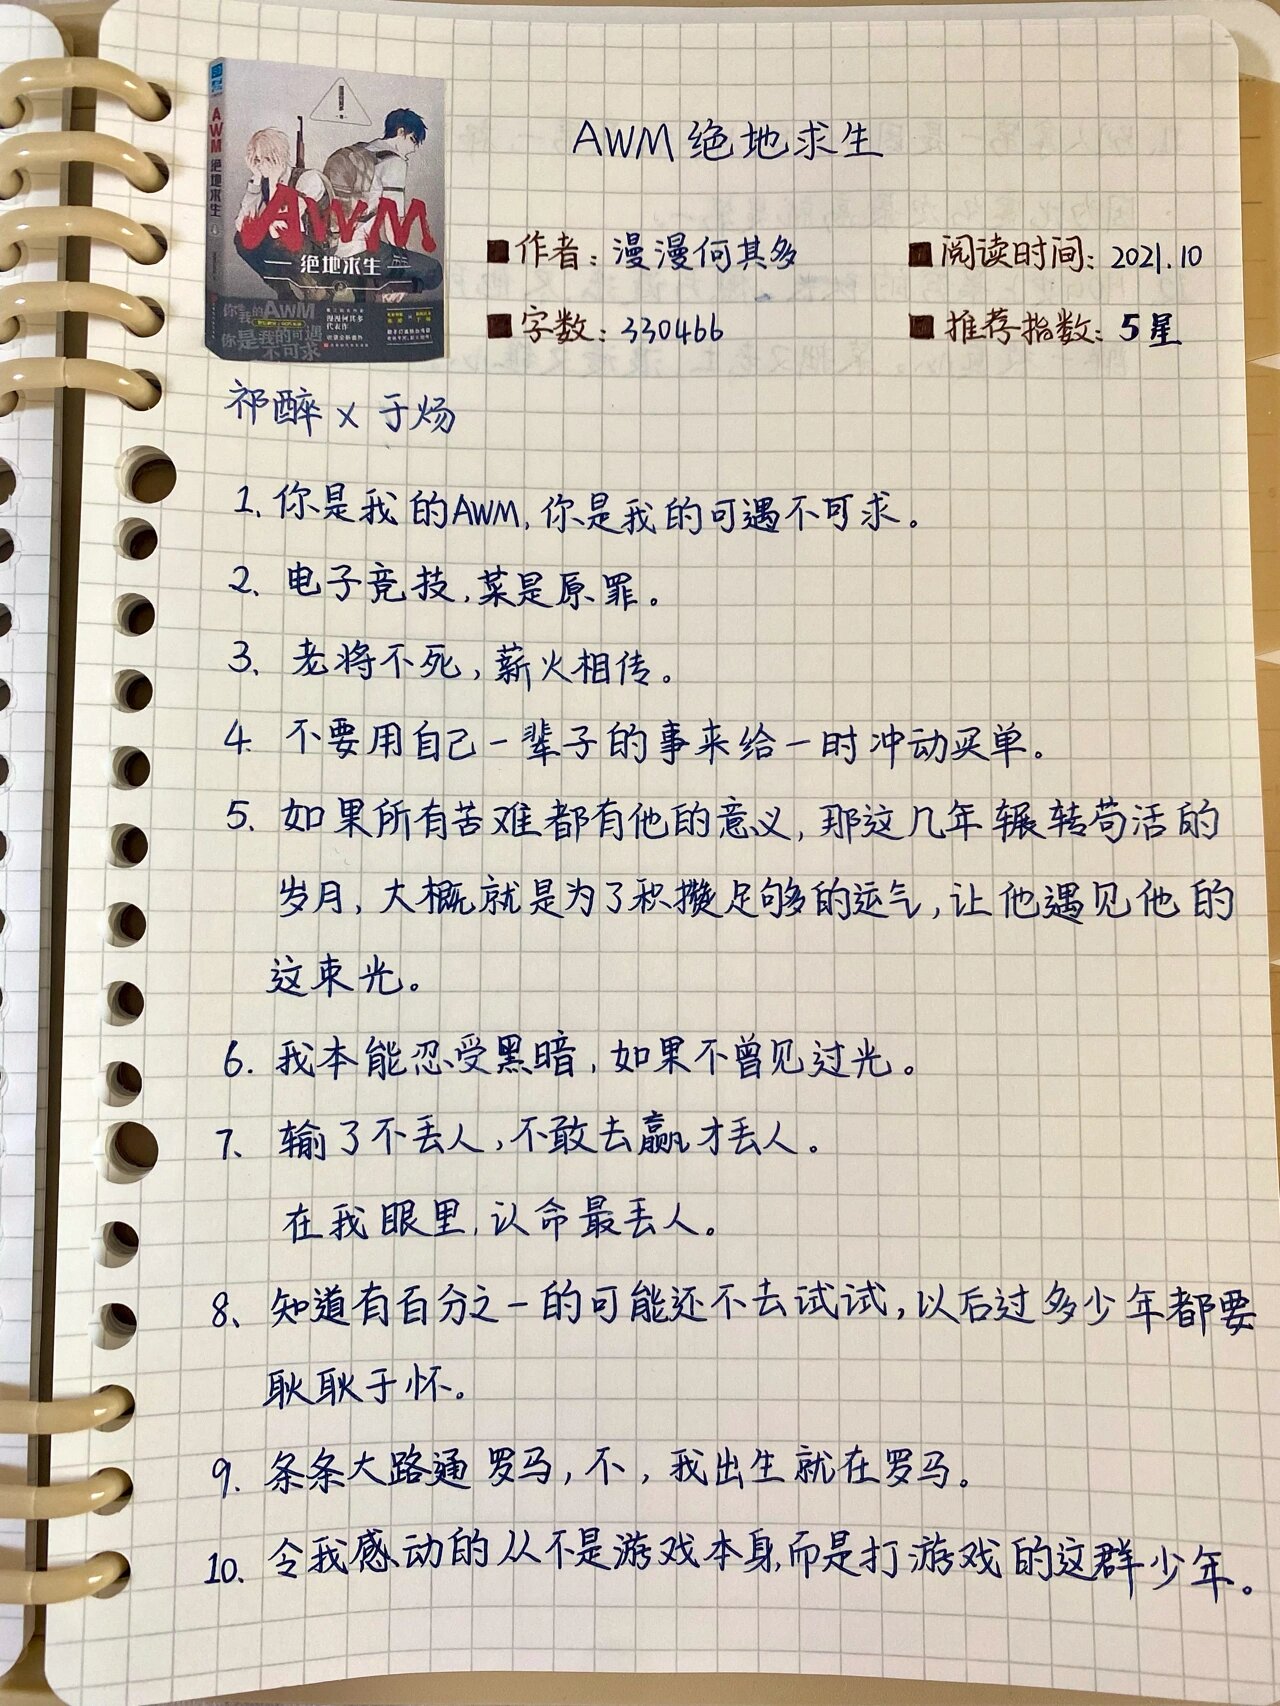 AWM 绝地求生
AWM 绝地求生
AWM
绝地求生
你我的AWM
你是我的可遇
不可求
漫漫何其多
代表作
■作者：漫漫何其多
■阅读时间：2021.10
■字数：330466
■推荐指数：5星
祁醉 x 于炀
1、你是我的AWM,你是我的可遇不可求。
2、电子竞技,菜是原罪。
3、老将不死,薪火相传。
4. 不要用自己一辈子的事来给一时冲动买单。
5、如果所有苦难都有他的意义,那这几年辗转苟活的
岁月,大概就是为了积攒足够的运气,让他遇见他的
这束光。
6. 我本能忍受黑暗,如果不曾见过光。
7、输了不丢人,不敢去赢才丢人。
在我眼里,认命最丢人。
8、知道有百分之一的可能还不去试试,以后过多少年都要
耿耿于怀。
9、条条大路通罗马,不,我出生就在罗马。
10、令我感动的从不是游戏本身,而是打游戏的这群少年。